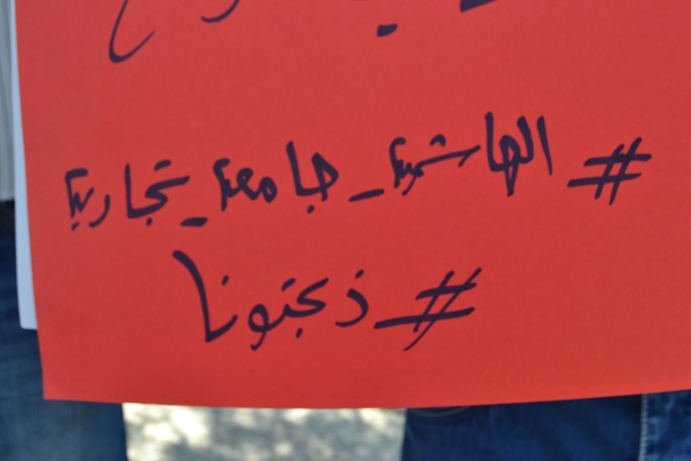 #الهاشمية_جامعة_تجارية
#ذبحتونا